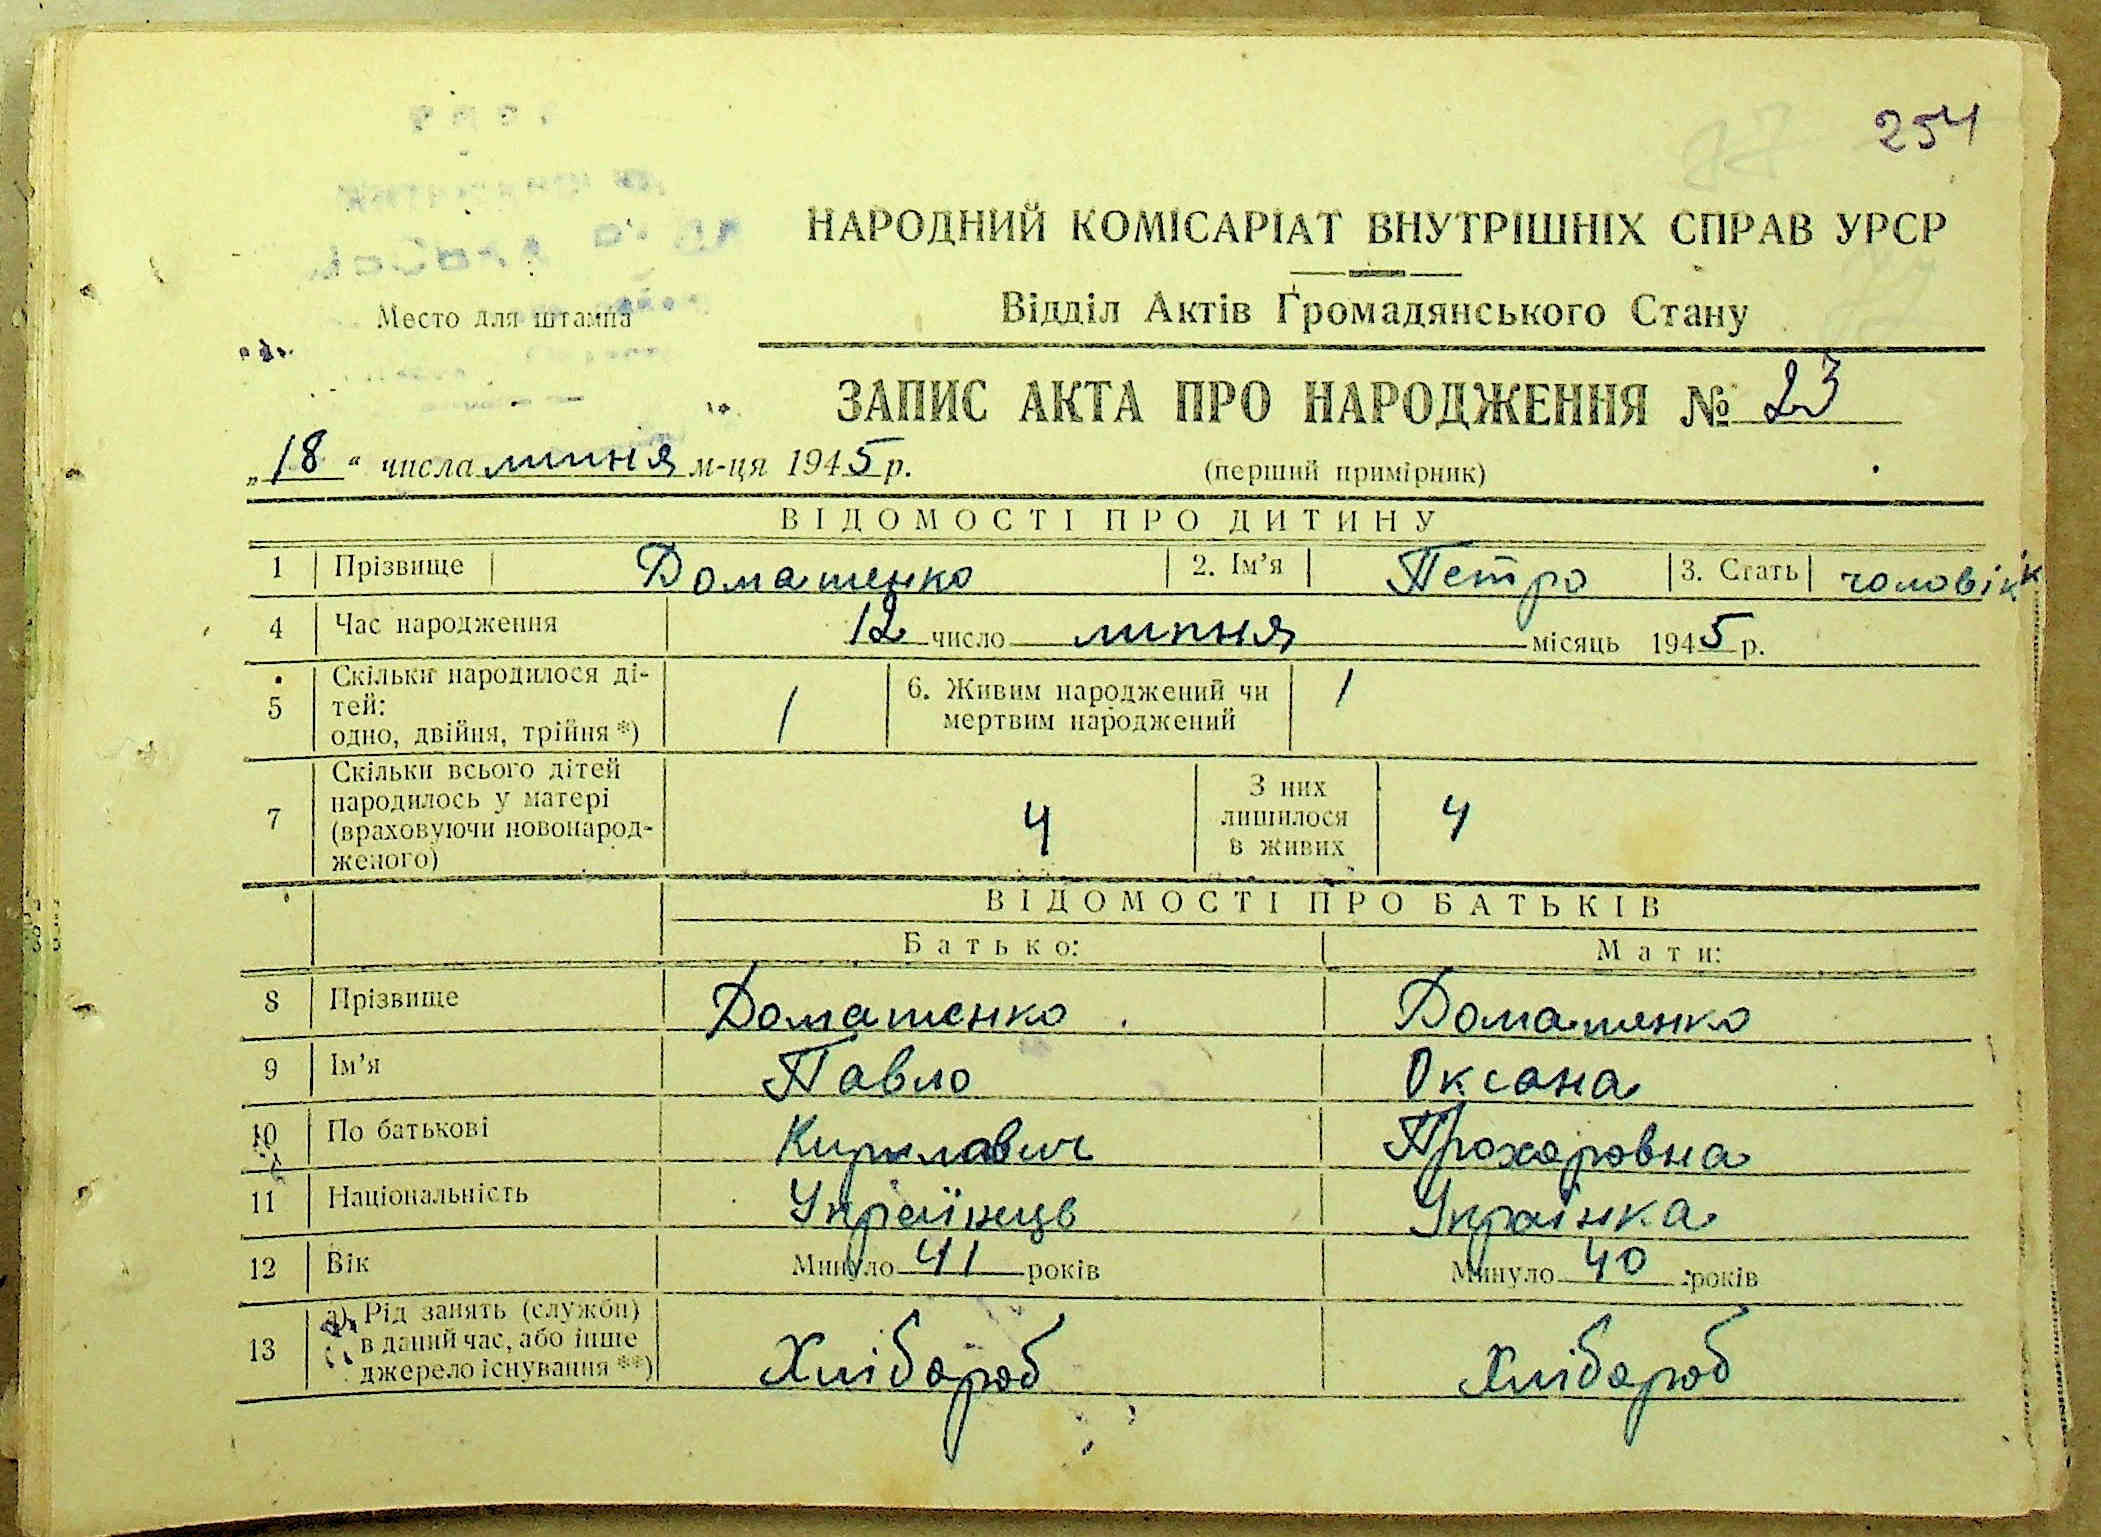 254
НАРОДНИЙ КОМІСАРІАТ ВНУТРІШНІХ СПРАВ УРСР
Место для штампа
Відділ Актів Громадянського Стану
ЗАПИС АКТА ПРО НАРОДЖЕННЯ № 23
„18“ числа липня м-ця 1945 р. (перший примірник)
ВІДОМОСТІ ПРО ДИТИНУ
1 Прізвище Доматенко 2. Ім'я Петро 3. Стать чоловік
4 Час народження 12 число липня місяць 1945 р.
5 Скільки народилося ді-
тей:
одно, двійня, трійня *) 1
6. Живим народжений чи
мертвим народжений 1
7 Скільки всього дітей
народилось у матері
(враховуючи новонарод-
женого) 4
З них
лишилося
в живих 4
ВІДОМОСТІ ПРО БАТЬКІВ
Батько: Мати:
8 Прізвище Доматенко Доматенко
9 Ім'я Павло Оксана
10 По батькові Кирилович Прохоровна
11 Національність Українець Українка
12 Вік Минуло 41 років Минуло 40 років
13 а) Рід занять (служби)
в даний час, або інше
джерело існування **) Хлібороб Хлібороб